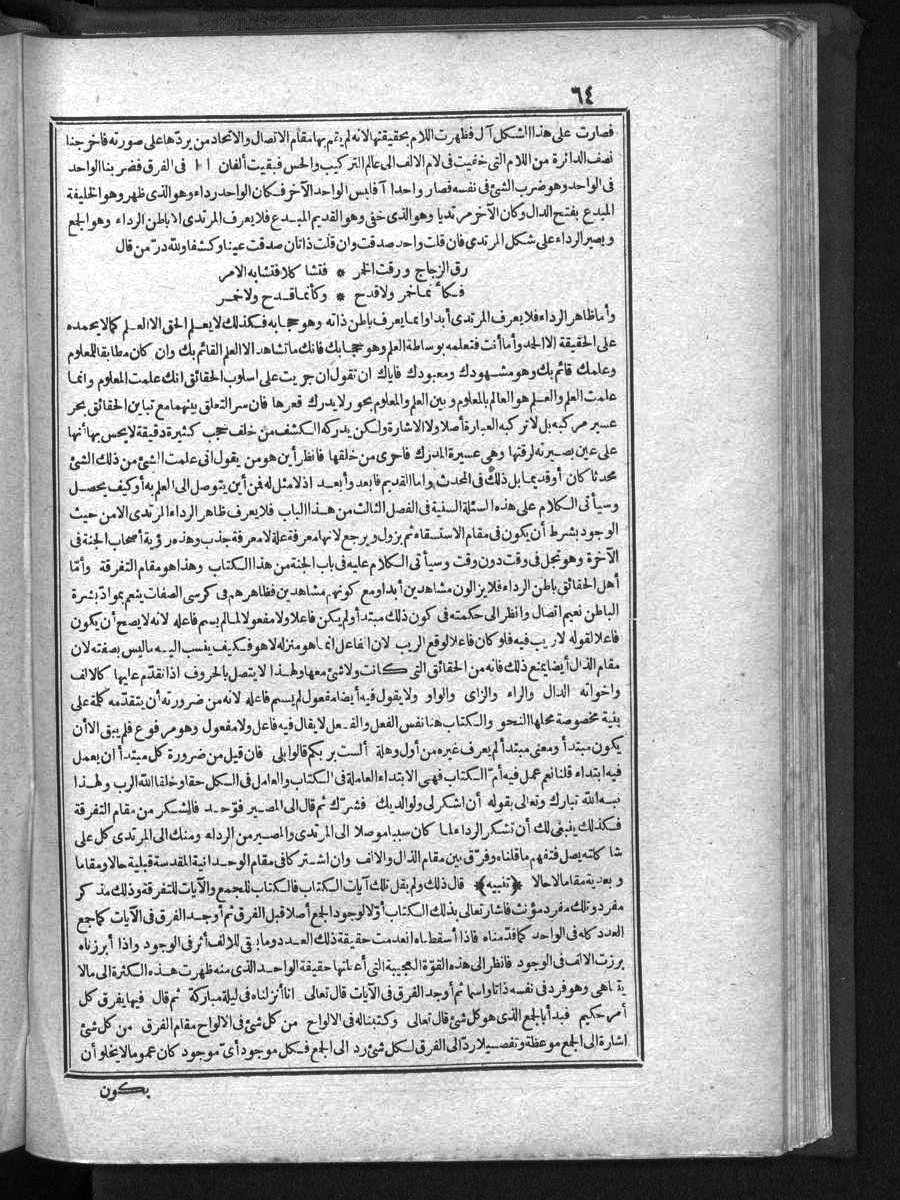 ٦٤
فصارت على هذا الشكل آل فظهرت اللام بحقيقتها لانه لم يقم بها مقام الاتصال والاتحاد من يردّها على صورته فاخرجنا
نصف الدائرة من اللام التى خفيت فى لام الالف الى عالم التركيب والحس فبقيت ألفان ١١ فى الفرق فضربنا الواحد
فى الواحد وهو ضرب الشئ فى نفسه فصار واحدا آ فلبس الواحد الآخر فكان الواحد رداء وهو الذى ظهر وهو الخليفة
المبدع بفتح الدال وكان الآخر مرتديا وهو الذى خفى وهو القديم المبدع فلا يعرف المرتدى الا باطن الرداء وهو الجمع
ويصير الرداء على شكل المرتدى فان قلت واحد صدقت وان قلت ذاتان صدقت عينا وكشفا ولله درّ من قال
رق الزجاج ورقت الخمر * فتشاكلا فتشابه الامر
فكأنما خمر ولا قدح * وكأنما قدح ولا خمر
وأما ظاهر الرداء فلا يعرف المرتدى أبدا وانما يعرف باطن ذاته وهو حجابه فكذلك لا يعلم الحق الا العلم كما لا يحمده
على الحقيقة الا الحمد وأما أنت فتعلمه بوساطة العلم وهو حجابك فانك ما تشاهد الا العلم القائم بك وان كان مطابقا للمعلوم
وعلمك قائم بك وهو مشهودك ومعبودك فاياك ان تقول ان جريت على اسلوب الحقائق انك علمت المعلوم وانما
علمت العلم والعلم هو العالم بالمعلوم وبين العلم والمعلوم بحور لا يدرك قعرها فان سر التعلق بينهما مع تباين الحقائق بحر
عسير مركبه بل لا تركبه العبارة أصلا ولا الاشارة ولكن يدركه الكشف من خلف حجب كثيرة دقيقة لا يحس بها أنها
على عين بصيرته لرقتها وهى عسيرة المدرك فاحرى من خلقها فانظر أين هو من يقول انى علمت الشئ من ذلك الشئ
محدثا كان أو قديما بل ذلك فى المحدث واما القديم فابعد وأبعد اذ لا مثل له فمن أين يتوصل الى العلم به أو كيف يحصل
وسيأتى الكلام على هذه المسئلة السنية فى الفصل الثالث من هذا الباب فلا يعرف ظاهر الرداء المرتدى الا من حيث
الوجود بشرط أن يكون فى مقام الاستسقاء ثم يزول ويرجع لانها معرفة علة لا معرفة جذب وهذه رؤية أصحاب الجنة فى
الآخرة وهو تجل فى وقت دون وقت وسيأتى الكلام عليه فى باب الجنة من هذا الكتاب وهذا هو مقام التفرقة وأمّا
أهل الحقائق باطن الرداء فلا يزالون مشاهدين أبدا ومع كونهم مشاهدين فظاهرهم فى كرسى الصفات ينعم بموادّ بشرة
الباطن نعيم اتصال وانظر الى حكمته فى كون ذلك مبتدأ ولم يكن فاعلا ولا مفعولا لما لم يسم فاعله لانه لا يصح أن يكون
فاعلا لقوله لا ريب فيه فلو كان فاعلا لوقع الريب لان الفاعل انما هو منزله لا هو فكيف ينسب اليه ما ليس بصفته لان
مقام الذال أيضا يمنع ذلك فانه من الحقائق التى كانت ولا شئ معها ولهذا لا يتصل بالحروف اذا تقدّم عليها كالالف
واخواته الدال والراء والزاى والواو ولا يقول فيه أيضا مفعول لم يسم فاعله لانه من ضرورته أن يتقدّمه كلمة على
بنية مخصوصة محلها النحو والكتاب هنا نفس الفعل والفعل لا يقال فيه فاعل ولا مفعول وهو مرفوع فلم يبق الا أن
يكون مبتدأ ومعنى مبتدأ لم يعرف غيره من أول وهلة ألست بربكم قالوا بلى فان قيل من ضرورة كل مبتدأ ان يعمل
فيه ابتداء قلنا نعم عمل فيه أمّ الكتاب فهى الابتداء العاملة فى الكتاب والعامل فى الكل حقا وخلقا الله الرب ولهذا
نبه الله تبارك وتعالى بقوله أن اشكر لى ولوالديك فشرّك ثم قال الى المصير فوحد فالشكر من مقام التفرقة
فكذلك ينبغى لك أن تشكر الرداء لما كان سببا موصلا الى المرتدى والمصير من الرداء ومنك الى المرتدى كل على
شاكلته يصل فتفهم ما قلناه وفرّق بين مقام الذال والالف وان اشتركا فى مقام الوحدانية المقدسة قبلية حالا ومقاما
وبعدية مقاما لا حالا ﴿تنبيه﴾ قال ذلك ولم يقل تلك آيات الكتاب فالكتاب للجمع والآيات للتفرقة وذلك مذكر
مفرد وتلك مفرد مؤنث فاشار تعالى بذلك الكتاب أوّلا لوجود الجمع أصلا قبل الفرق ثم أوجد الفرق فى الآيات كما جمع
العدد كله فى الواحد كما قدّمناه فاذا أسقطناه انعدمت حقيقة ذلك العدد وما بقى للالف أثر فى الوجود واذا أبرزناه
برزت الالف فى الوجود فانظر الى هذه القوّة العجيبة التى أعطتها حقيقة الواحد الذى منه ظهرت هذه الكثرة الى ما لا
يتناهى وهو فرد فى نفسه ذاتا واسما ثم أوجد الفرق فى الآيات قال تعالى انا أنزلناه فى ليلة مباركة ثم قال فيها يفرق كل
أمر حكيم فبدأ بالجمع الذى هو كل شئ قال تعالى وكتبنا له فى الالواح من كل شئ فى الالواح مقام الفرق من كل شئ
اشارة الى الجمع موعظة وتفصيلا ردّ الى الفرق لكل شئ رد الى الجمع فكل موجود أىّ موجود كان عموما لا يخلو أن
يكون